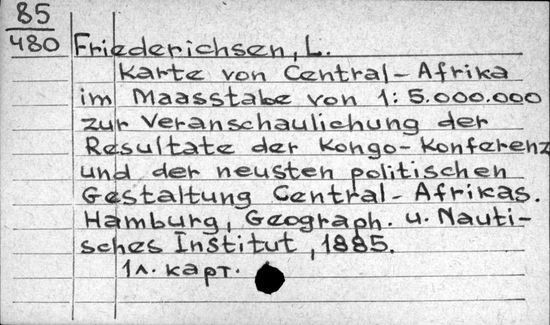 85
480
Friederichsen, L.
Karte von Central-Afrika
im Maasstabe von 1:5.000.000
zur Veranschaulichung der
Resultate der Kongo-Konferenz
und der neusten politischen
Gestaltung Central-Afrikas.
Hamburg, Geograph. u. Nauti-
sches Institut, 1885.
1л. карт.